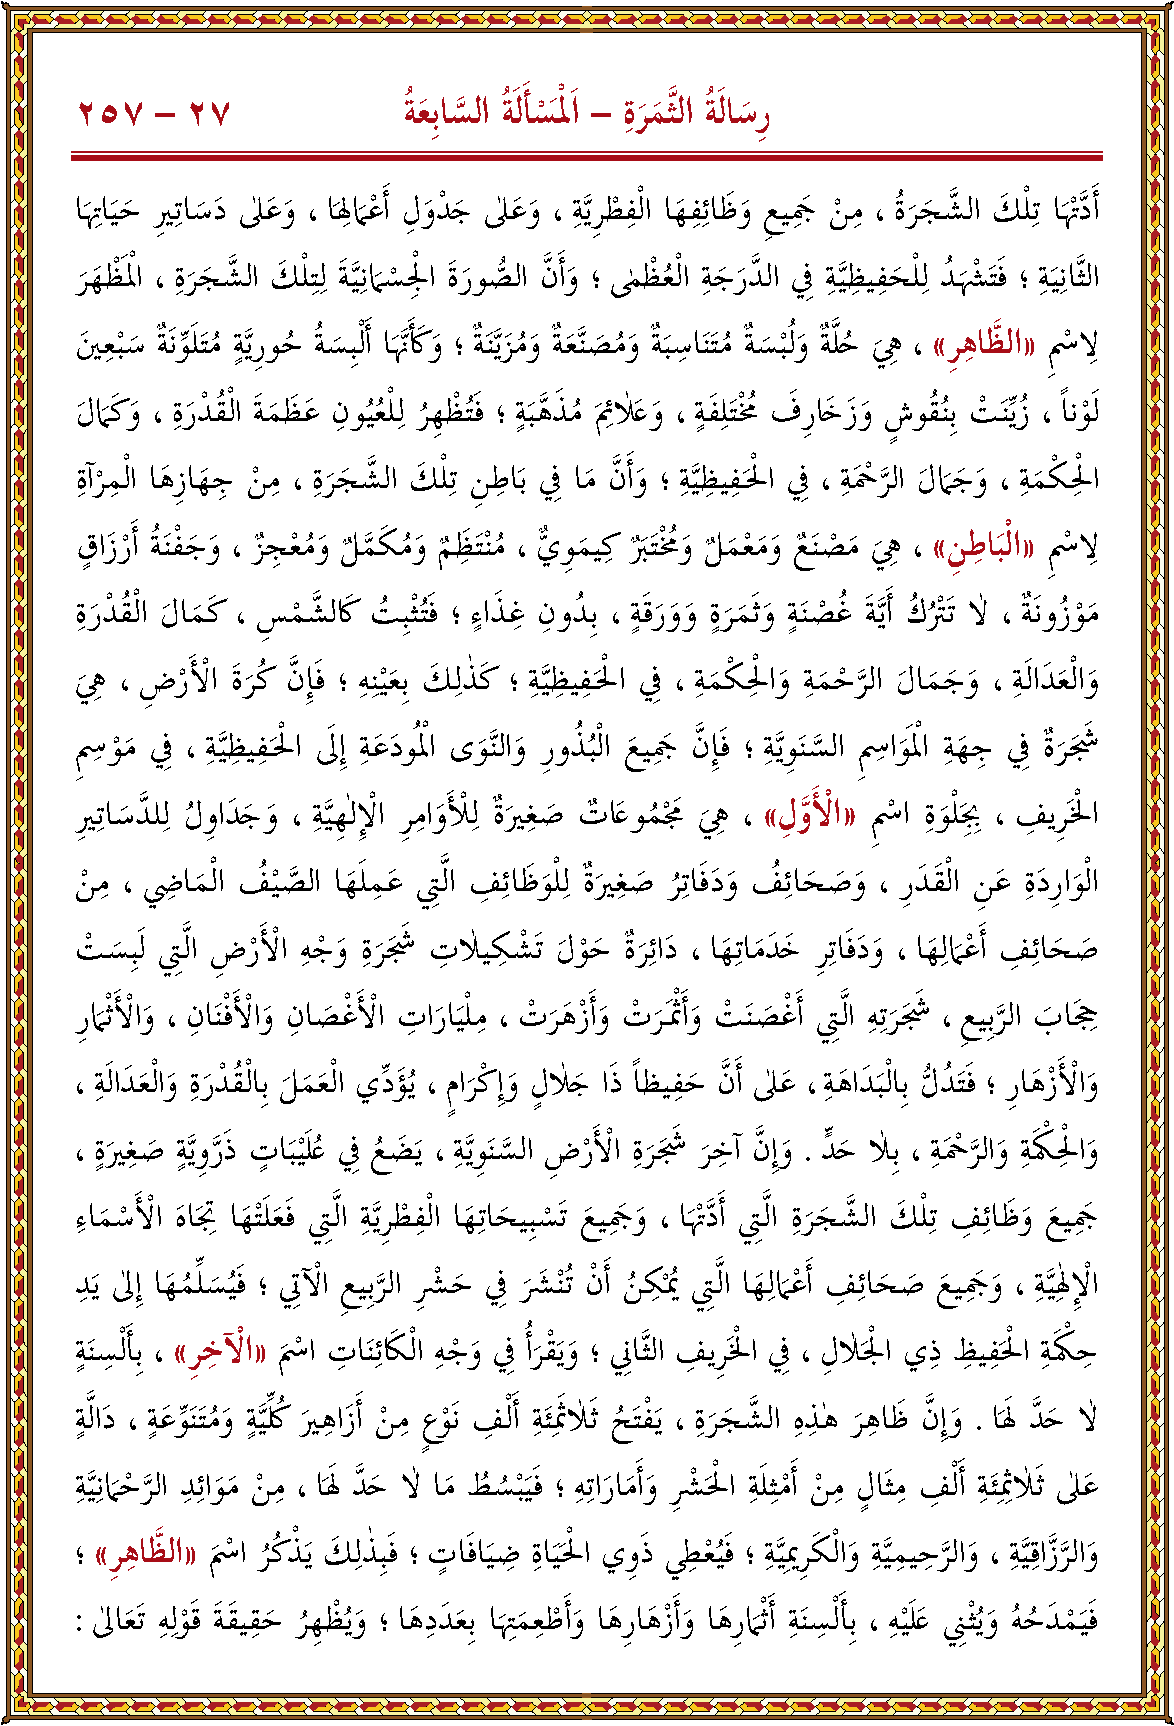 رِسَالَةُ الثَّمَرَةِ – اَلْمَسْأَلَةُ السَّابِعَةُ ٢٧ – ٢٥٧
أَدَّتْهَا تِلْكَ الشَّجَرَةُ ، مِنْ جَمِيعِ وَظَائِفِهَا الْفِطْرِيَّةِ ، وَعَلٰى جَدْوَلِ أَعْمَالِهَا ، وَعَلٰى دَسَاتِيرِ حَيَاتِهَا
الثَّانِيَةِ ؛ فَتَشْهَدُ لِلْحَفِيظِيَّةِ فِي الدَّرَجَةِ الْعُظْمٰى ؛ وَأَنَّ الصُّورَةَ الْجِسْمَانِيَّةَ لِتِلْكَ الشَّجَرَةِ ، الْمَظْهَرَ
لِاسْمِ «الظَّاهِرِ» ، هِيَ حُلَّةٌ وَلُبْسَةٌ مُتَنَاسِبَةٌ وَمُصَنَّعَةٌ وَمُزَيَّنَةٌ ؛ وَكَأَنَّهَا أَلْبِسَةُ حُورِيَّةٍ مُتَلَوِّنَةٌ سَبْعِينَ
لَوْناً ، زُيِّنَتْ بِنُقُوشٍ وَزَخَارِفَ مُخْتَلِفَةٍ ، وَعَلَائِمَ مُذَهَّبَةٍ ؛ فَتُظْهِرُ لِلْعُيُونِ عَظَمَةَ الْقُدْرَةِ ، وَكَمَالَ
الْحِكْمَةِ ، وَجَمَالَ الرَّحْمَةِ ، فِي الْحَفِيظِيَّةِ ؛ وَأَنَّ مَا فِي بَاطِنِ تِلْكَ الشَّجَرَةِ ، مِنْ جِهَازِهَا الْمِرْآةِ
لِاسْمِ «الْبَاطِنِ» ، هِيَ مَصْنَعٌ وَمَعْمَلٌ وَمُخْتَبَرٌ كِيمَوِيٌّ ، مُنْتَظَمٌ وَمُكَمَّلٌ وَمُعْجِزٌ ، وَجَفْنَةُ أَرْزَاقٍ
مَوْزُونَةٌ ، لَا تَتْرُكُ أَيَّةَ غُصْنَةٍ وَثَمَرَةٍ وَوَرَقَةٍ ، بِدُونِ غِذَاءٍ ؛ فَتُثْبِتُ كَالشَّمْسِ ، كَمَالَ الْقُدْرَةِ
وَالْعَدَالَةِ ، وَجَمَالَ الرَّحْمَةِ وَالْحِكْمَةِ ، فِي الْحَفِيظِيَّةِ ؛ كَذٰلِكَ بِعَيْنِهِ ؛ فَإِنَّ كُرَةَ الْأَرْضِ ، هِيَ
شَجَرَةٌ فِي جِهَةِ الْمَوَاسِمِ السَّنَوِيَّةِ ؛ فَإِنَّ جَمِيعَ الْبُذُورِ وَالنَّوَى الْمُودَعَةِ إِلَى الْحَفِيظِيَّةِ ، فِي مَوْسِمِ
الْخَرِيفِ ، بِجَلْوَةِ اسْمِ «الْأَوَّلِ» ، هِيَ مَجْمُوعَاتٌ صَغِيرَةٌ لِلْأَوَامِرِ الْإِلٰهِيَّةِ ، وَجَدَاوِلُ لِلدَّسَاتِيرِ
الْوَارِدَةِ عَنِ الْقَدَرِ ، وَصَحَائِفُ وَدَفَاتِرُ صَغِيرَةٌ لِلْوَظَائِفِ الَّتِي عَمِلَهَا الصَّيْفُ الْمَاضِي ، مِنْ
صَحَائِفِ أَعْمَالِهَا ، وَدَفَاتِرِ خَدَمَاتِهَا ، دَائِرَةٌ حَوْلَ تَشْكِيلَاتِ شَجَرَةِ وَجْهِ الْأَرْضِ الَّتِي لَبِسَتْ
حِجَابَ الرَّبِيعِ ، شَجَرَتِهِ الَّتِي أَغْصَنَتْ وَأَثْمَرَتْ وَأَزْهَرَتْ ، مِلْيَارَاتِ الْأَغْصَانِ وَالْأَفْنَانِ ، وَالْأَثْمَارِ
وَالْأَزْهَارِ ؛ فَتَدُلُّ بِالْبَدَاهَةِ ، عَلٰى أَنَّ حَفِيظاً ذَا جَلَالٍ وَإِكْرَامٍ ، يُؤَدِّي الْعَمَلَ بِالْقُدْرَةِ وَالْعَدَالَةِ ،
وَالْحِكْمَةِ وَالرَّحْمَةِ ، بِلَا حَدٍّ . وَإِنَّ آخِرَ شَجَرَةِ الْأَرْضِ السَّنَوِيَّةِ ، يَضَعُ فِي عُلَيْبَاتٍ ذَرَّوِيَّةٍ صَغِيرَةٍ ،
جَمِيعَ وَظَائِفِ تِلْكَ الشَّجَرَةِ الَّتِي أَدَّتْهَا ، وَجَمِيعَ تَسْبِيحَاتِهَا الْفِطْرِيَّةِ الَّتِي فَعَلَتْهَا تِجَاهَ الْأَسْمَاءِ
الْإِلٰهِيَّةِ ، وَجَمِيعَ صَحَائِفِ أَعْمَالِهَا الَّتِي يُمْكِنُ أَنْ تُنْشَرَ فِي حَشْرِ الرَّبِيعِ الْآتِي ؛ فَيُسَلِّمُهَا إِلٰى يَدِ
حِكْمَةِ الْحَفِيظِ ذِي الْجَلَالِ ، فِي الْخَرِيفِ الثَّانِي ؛ وَيَقْرَأُ فِي وَجْهِ الْكَائِنَاتِ اسْمَ «الْآخِرِ» ، بِأَلْسِنَةٍ
لَا حَدَّ لَهَا . وَإِنَّ ظَاهِرَ هٰذِهِ الشَّجَرَةِ ، يَفْتَحُ ثَلَاثَمِئَةِ أَلْفِ نَوْعٍ مِنْ أَزَاهِيرَ كُلِّيَّةٍ وَمُتَنَوِّعَةٍ ، دَالَّةً
عَلٰى ثَلَاثِمِئَةِ أَلْفِ مِثَالٍ مِنْ أَمْثِلَةِ الْحَشْرِ وَأَمَارَاتِهِ ؛ فَيَبْسُطُ مَا لَا حَدَّ لَهَا ، مِنْ مَوَائِدِ الرَّحْمَانِيَّةِ
وَالرَّزَّاقِيَّةِ ، وَالرَّحِيمِيَّةِ وَالْكَرِيمِيَّةِ ؛ فَيُعْطِي ذَوِي الْحَيَاةِ ضِيَافَاتٍ ؛ فَبِذٰلِكَ يَذْكُرُ اسْمَ «الظَّاهِرِ» ؛
فَيَمْدَحُهُ وَيُثْنِي عَلَيْهِ ، بِأَلْسِنَةِ أَثْمَارِهَا وَأَزْهَارِهَا وَأَطْعِمَتِهَا بِعَدَدِهَا ؛ وَيُظْهِرُ حَقِيقَةَ قَوْلِهِ تَعَالٰى :